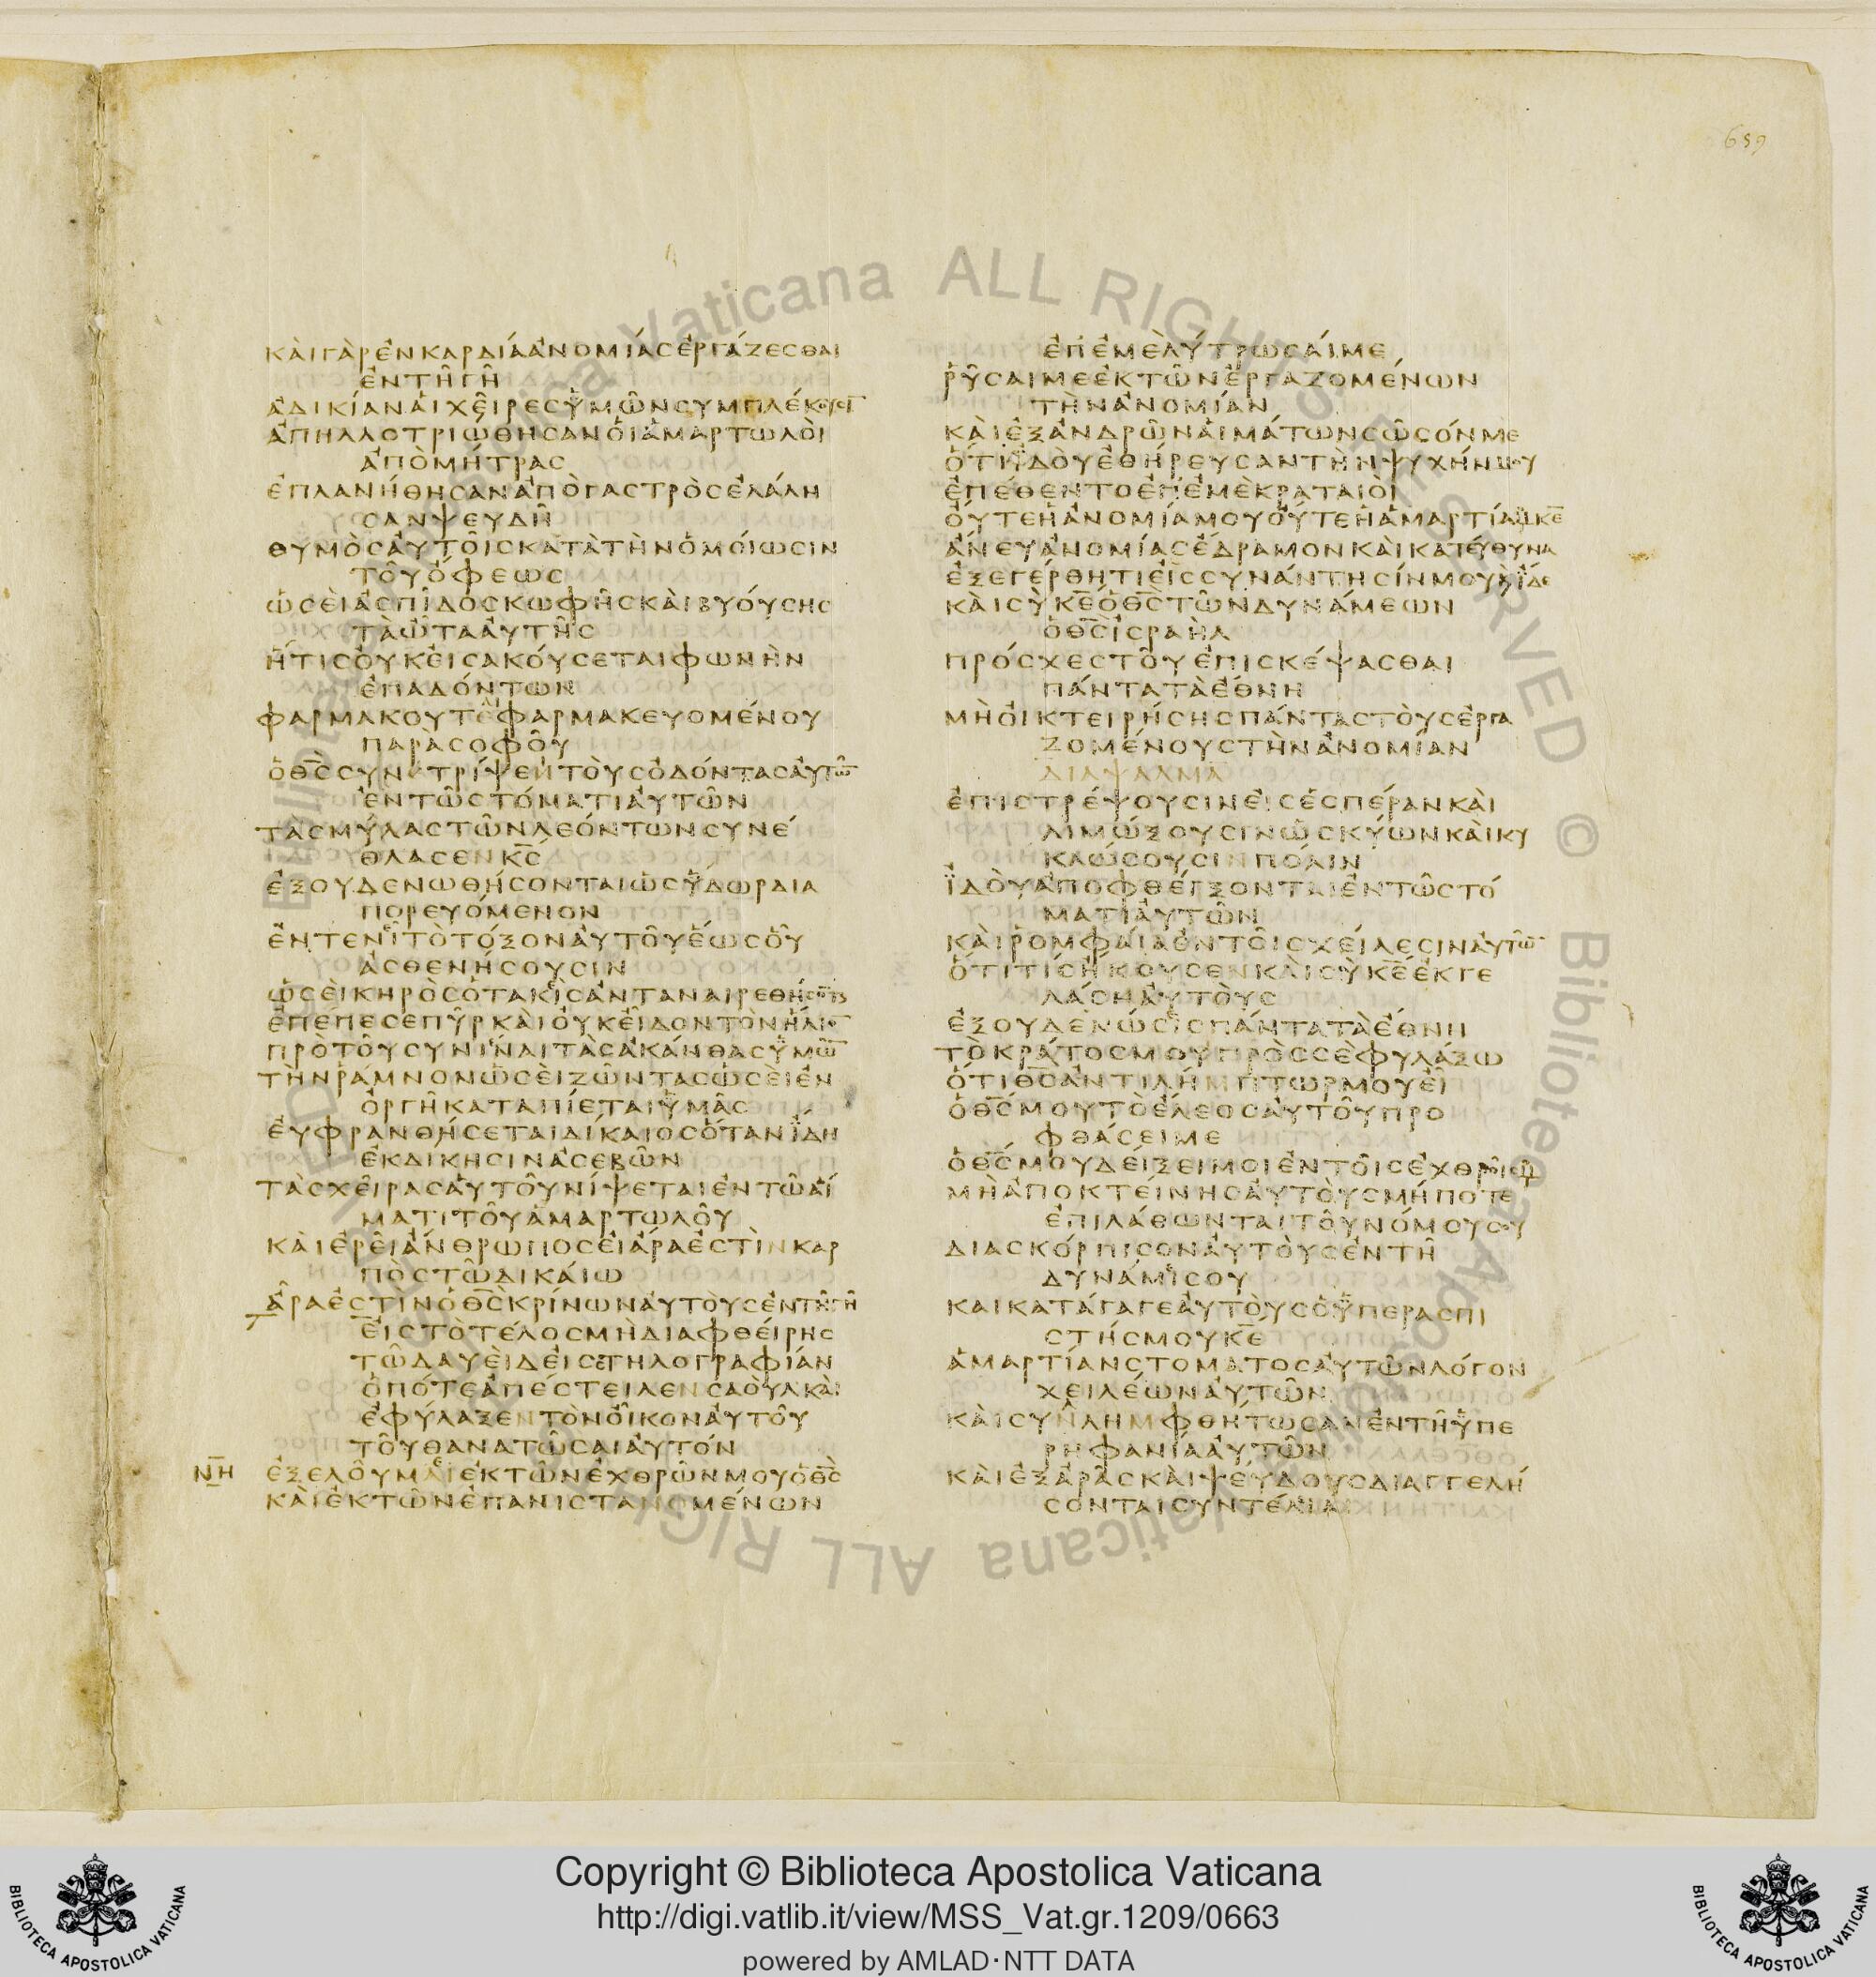 659
ΚΑΙΓΑΡΕΝΚΑΡΔΙΑΑΝΟΜΙΑΣΕΡΓΑΖΕΣΘΑΙ
ΕΝΤΗΓΗ
ΑΔΙΚΙΑΝΑΙΧΕΙΡΕΣΥΜΩΝΣΥΜΠΛΕΚΟΥΣΙ
ΑΠΗΛΛΟΤΡΙΩΘΗΣΑΝΟΙΑΜΑΡΤΩΛΟΙ
ΑΠΟΜΗΤΡΑΣ
ΕΠΛΑΝΗΘΗΣΑΝΑΠΟΓΑΣΤΡΟΣΕΛΑΛΗ
ΣΑΝΨΕΥΔΗ
ΘΥΜΟΣΑΥΤΟΙΣΚΑΤΑΤΗΝΟΜΟΙΩΣΙΝ
ΤΟΥΟΦΕΩΣ
ΩΣΕΙΑΣΠΙΔΟΣΚΩΦΗΣΚΑΙΒΥΟΥΣΗΣ
ΤΑΩΤΑΑΥΤΗΣ
ΗΤΙΣΟΥΚΕΙΣΑΚΟΥΣΕΤΑΙΦΩΝΗΝ
ΕΠΑΔΟΝΤΩΝ
ΦΑΡΜΑΚΟΥΤΕΦΑΡΜΑΚΕΥΟΜΕΝΟΥ
ΠΑΡΑΣΟΦΟΥ
ΟΘΣΣΥΝΕΤΡΙΨΕΝΤΟΥΣΟΔΟΝΤΑΣΑΥΤΩ
ΕΝΤΩΣΤΟΜΑΤΙΑΥΤΩΝ
ΤΑΣΜΥΛΑΣΤΩΝΛΕΟΝΤΩΝΣΥΝΕ
ΘΛΑΣΕΝΚΣ
ΕΞΟΥΔΕΝΩΘΗΣΟΝΤΑΙΩΣΥΔΩΡΔΙΑ
ΠΟΡΕΥΟΜΕΝΟΝ
ΕΝΤΕΝΙΤΟΤΟΞΟΝΑΥΤΟΥΕΩΣΟΥ
ΑΣΘΕΝΗΣΟΥΣΙΝ
ΩΣΕΙΚΗΡΟΣΟΤΑΚΙΣΑΝΤΑΝΑΙΡΕΘΗΣΟΝΤΑΙ
ΕΠΕΠΕΣΕΠΥΡΚΑΙΟΥΚΕΙΔΟΝΤΟΝΗΛΙΟ
ΠΡΟΤΟΥΣΥΝΙΝΑΙΤΑΣΑΚΑΝΘΑΣΥΜΩ
ΤΗΝΡΑΜΝΟΝΩΣΕΙΖΩΝΤΑΣΩΣΕΙΕΝ
ΟΡΓΗΚΑΤΑΠΙΕΤΑΙΥΜΑΣ
ΕΥΦΡΑΝΘΗΣΕΤΑΙΔΙΚΑΙΟΣΟΤΑΝΙΔΗ
ΕΚΔΙΚΗΣΙΝΑΣΕΒΩΝ
ΤΑΣΧΕΙΡΑΣΑΥΤΟΥΝΙΨΕΤΑΙΕΝΤΩΑΙ
ΜΑΤΙΤΟΥΑΜΑΡΤΩΛΟΥ
ΚΑΙΕΡΕΙΑΝΘΡΩΠΟΣΕΙΑΡΑΕΣΤΙΝΚΑΡ
ΠΟΣΤΩΔΙΚΑΙΩ
ΑΡΑΕΣΤΙΝΟΘΣΚΡΙΝΩΝΑΥΤΟΥΣΕΝΤΗΓΗ
ΕΙΣΤΟΤΕΛΟΣΜΗΔΙΑΦΘΕΙΡΗΣ
ΤΩΔΑΥΕΙΔΕΙΣΣΤΗΛΟΓΡΑΦΙΑΝ
ΟΠΟΤΕΑΠΕΣΤΕΙΛΕΝΣΑΟΥΛΚΑΙ
ΕΦΥΛΑΞΕΝΤΟΝΟΙΚΟΝΑΥΤΟΥ
ΤΟΥΘΑΝΑΤΩΣΑΙΑΥΤΟΝ
ΝΗ ΕΞΕΛΟΥΜΑΙΕΚΤΩΝΕΧΘΡΩΝΜΟΥΟΘΣ
ΚΑΙΕΚΤΩΝΕΠΑΝΙΣΤΑΝΟΜΕΝΩΝ
ΕΠΕΜΕΛΥΤΡΩΣΑΙΜΕ
ΡΥΣΑΙΜΕΕΚΤΩΝΕΡΓΑΖΟΜΕΝΩΝ
ΤΗΝΑΝΟΜΙΑΝ
ΚΑΙΕΞΑΝΔΡΩΝΑΙΜΑΤΩΝΣΩΣΟΝΜΕ
ΟΤΙΙΔΟΥΕΘΗΡΕΥΣΑΝΤΗΝΨΥΧΗΝΜΟΥ
ΕΠΕΘΕΝΤΟΕΠΕΜΕΚΡΑΤΑΙΟΙ
ΟΥΤΕΗΑΝΟΜΙΑΜΟΥΟΥΤΕΗΑΜΑΡΤΙΑΜΟΥΚΕ
ΑΝΕΥΑΝΟΜΙΑΣΕΔΡΑΜΟΝΚΑΙΚΑΤΕΥΘΥΝΑ
ΕΞΕΓΕΡΘΗΤΙΕΙΣΣΥΝΑΝΤΗΣΙΝΜΟΥΚΑΙΙΔΕ
ΚΑΙΣΥΚΕΟΘΣΤΩΝΔΥΝΑΜΕΩΝ
ΟΘΣΙΣΡΑΗΛ
ΠΡΟΣΧΕΣΤΟΥΕΠΙΣΚΕΨΑΣΘΑΙ
ΠΑΝΤΑΤΑΕΘΝΗ
ΜΗΟΙΚΤΕΙΡΗΣΗΣΠΑΝΤΑΣΤΟΥΣΕΡΓΑ
ΖΟΜΕΝΟΥΣΤΗΝΑΝΟΜΙΑΝ
ΔΙΑΨΑΛΜΑ
ΕΠΙΣΤΡΕΨΟΥΣΙΝΕΙΣΕΣΠΕΡΑΝΚΑΙ
ΛΙΜΩΞΟΥΣΙΝΩΣΚΥΩΝΚΑΙΚΥ
ΚΛΩΣΟΥΣΙΝΠΟΛΙΝ
ΙΔΟΥΑΠΟΦΘΕΓΞΟΝΤΑΙΕΝΤΩΣΤΟ
ΜΑΤΙΑΥΤΩΝ
ΚΑΙΡΟΜΦΑΙΑΕΝΤΟΙΣΧΕΙΛΕΣΙΝΑΥΤΩ
ΟΤΙΤΙΣΗΚΟΥΣΕΝΚΑΙΣΥΚΕΕΚΓΕ
ΛΑΣΗΑΥΤΟΥΣ
ΕΞΟΥΔΕΝΩΣΙΣΠΑΝΤΑΤΑΕΘΝΗ
ΤΟΚΡΑΤΟΣΜΟΥΠΡΟΣΣΕΦΥΛΑΞΩ
ΟΤΙΘΣΑΝΤΙΛΗΜΠΤΩΡΜΟΥΕΙ
ΟΘΣΜΟΥΤΟΕΛΕΟΣΑΥΤΟΥΠΡΟ
ΦΘΑΣΕΙΜΕ
ΟΘΣΜΟΥΔΕΙΞΕΙΜΟΙΕΝΤΟΙΣΕΧΘΡΟΙΣΜΟΥ
ΜΗΑΠΟΚΤΕΙΝΗΣΑΥΤΟΥΣΜΗΠΟΤΕ
ΕΠΙΛΑΘΩΝΤΑΙΤΟΥΝΟΜΟΥΣΟΥ
ΔΙΑΣΚΟΡΠΙΣΟΝΑΥΤΟΥΣΕΝΤΗ
ΔΥΝΑΜΙΣΟΥ
ΚΑΙΚΑΤΑΓΑΓΕΑΥΤΟΥΣΟΥΠΕΡΑΣΠΙ
ΣΤΗΣΜΟΥΚΕ
ΑΜΑΡΤΙΑΝΣΤΟΜΑΤΟΣΑΥΤΩΝΛΟΓΟΝ
ΧΕΙΛΕΩΝΑΥΤΩΝ
ΚΑΙΣΥΝΛΗΜΦΘΗΤΩΣΑΝΕΝΤΗΥΠΕ
ΡΗΦΑΝΙΑΑΥΤΩΝ
ΚΑΙΕΞΑΡΑΣΚΑΙΨΕΥΔΟΥΣΔΙΑΓΓΕΛΗ
ΣΟΝΤΑΙΣΥΝΤΕΛΙΑΙ
Biblioteca Apostolica Vaticana ALL RIGHTS RESERVED ©
Copyright © Biblioteca Apostolica Vaticana
http://digi.vatlib.it/view/MSS_Vat.gr.1209/0663
powered by AMLAD·NTT DATA
BIBLIOTECA APOSTOLICA VATICANA
BIBLIOTECA APOSTOLICA VATICANA